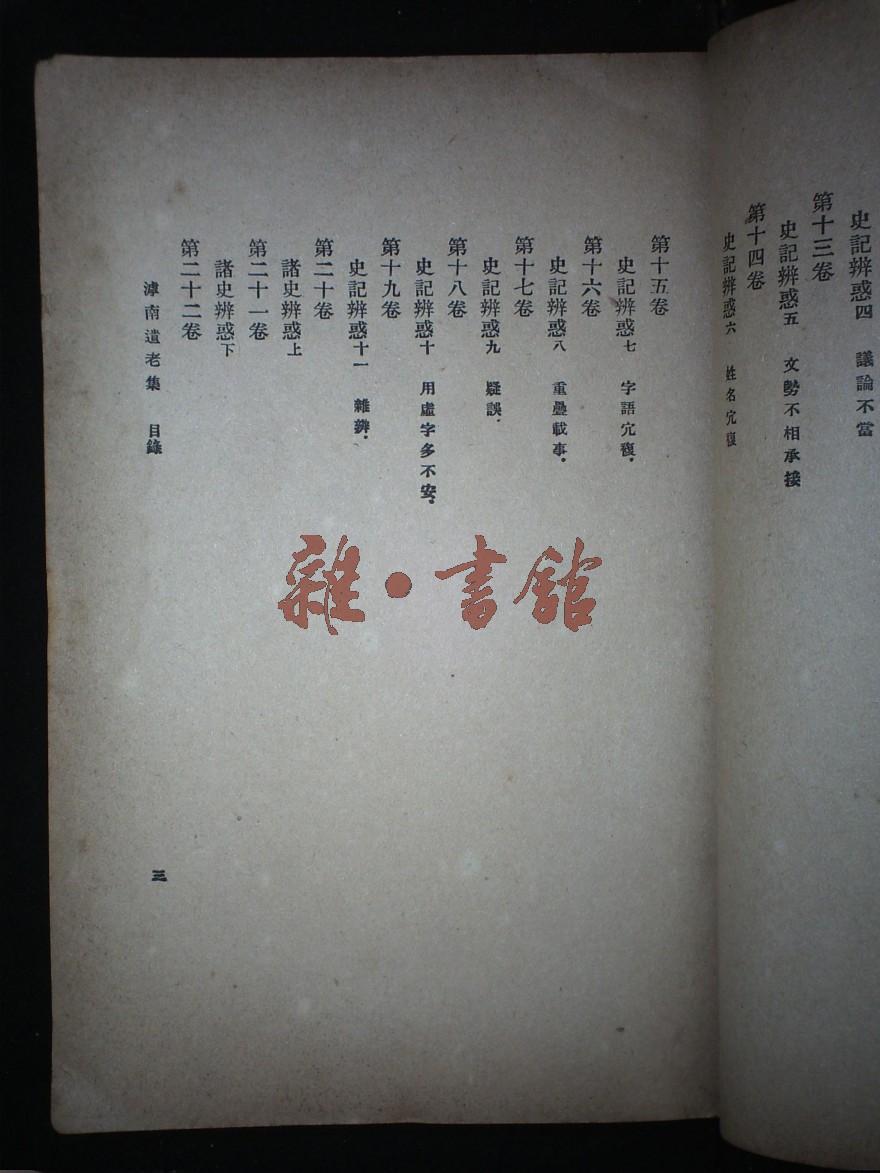 史記辨惑四　議論不當
第十三卷
史記辨惑五　文勢不相承接
第十四卷
史記辨惑六　姓名宂複
第十五卷
史記辨惑七　字語宂複．
第十六卷
史記辨惑八　重疊載事．
第十七卷
史記辨惑九　疑誤．
第十八卷
史記辨惑十　用虛字多不安．
第十九卷
史記辨惑十一　雜辨．
第二十卷
諸史辨惑上
第二十一卷
諸史辨惑下
第二十二卷
滹南遺老集　目錄
三
雜・書館